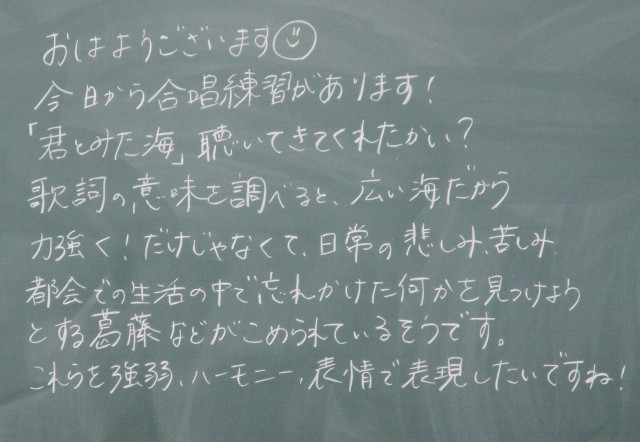 おはようございます
今日から合唱練習があります!
「君とみた海」聴いてきてくれたかい?
歌詞の意味を調べると、広い海だから
力強く!だけじゃなくて、日常の悲しみ、苦しみ
都会での生活の中で忘れかけた何かを見つけよう
とする葛藤などがこめられているそうです。
これらを強弱、ハーモニー、表情で表現したいですね!